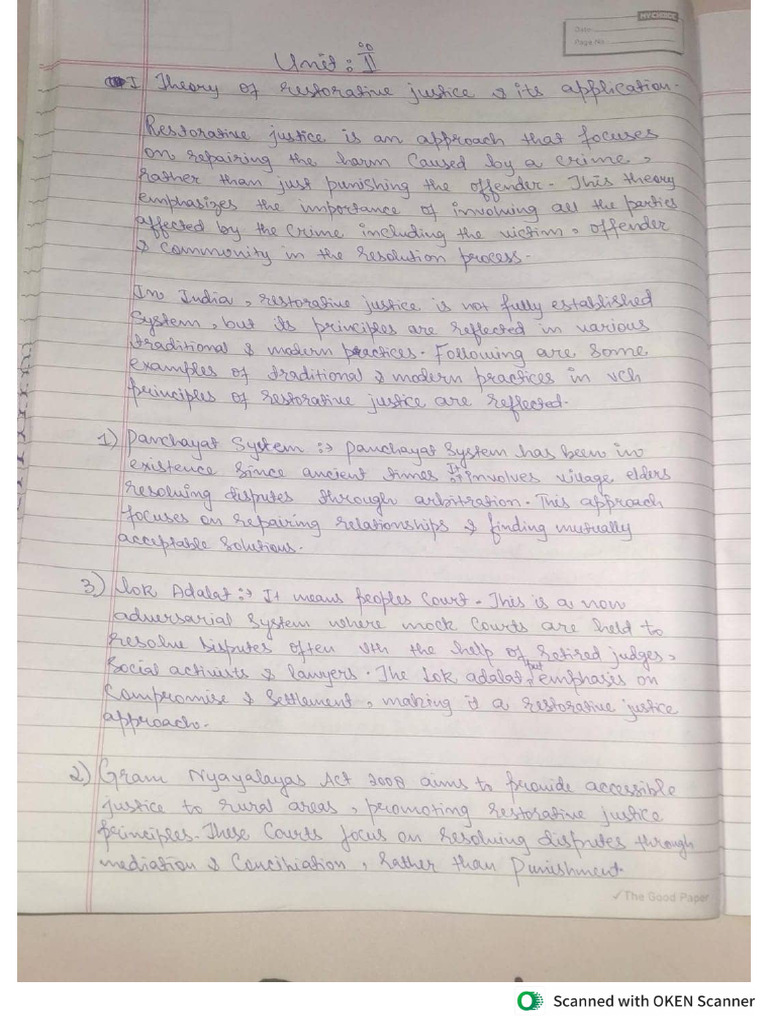 MY CHOICE
Date:
Page No.
Unit: II
I Theory of restorative justice & its application.
Restorative justice is an approach that focuses
on repairing the harm caused by a crime,
rather than just punishing the offender. This theory
emphasizes the importance of involving all the parties
affected by the crime including the victim, offender
& community in the resolution process.
In India, restorative justice is not fully established
system, but its principles are reflected in various
traditional & modern practices. Following are some
examples of traditional & modern practices in vch
principles of restorative justice are reflected.
1) Panchayat System :→ panchayat system has been in
existence since ancient times. It involves village elders
resolving disputes through arbitration. This approach
focuses on repairing relationships & finding mutually
acceptable solutions.
3) Lok Adalat :→ It means peoples court. This is a non
adversarial system where mock courts are held to
resolve disputes often vth the help of retired judges,
social activists & lawyers. The lok adalat put emphasis on
compromise & settlement, making it a restorative justice
approach.
2) Gram Nyayalayas Act 2008 aims to provide accessible
justice to rural areas, promoting restorative justice
principles. These courts focus on resolving disputes through
mediation & conciliation, rather than punishment.
✓The Good Paper
Scanned with OKEN Scanner